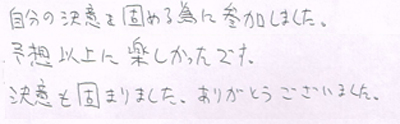 自分の決意を固める為に参加しました。
予想以上に楽しかったです。
決意も固まりました。ありがとうございました。